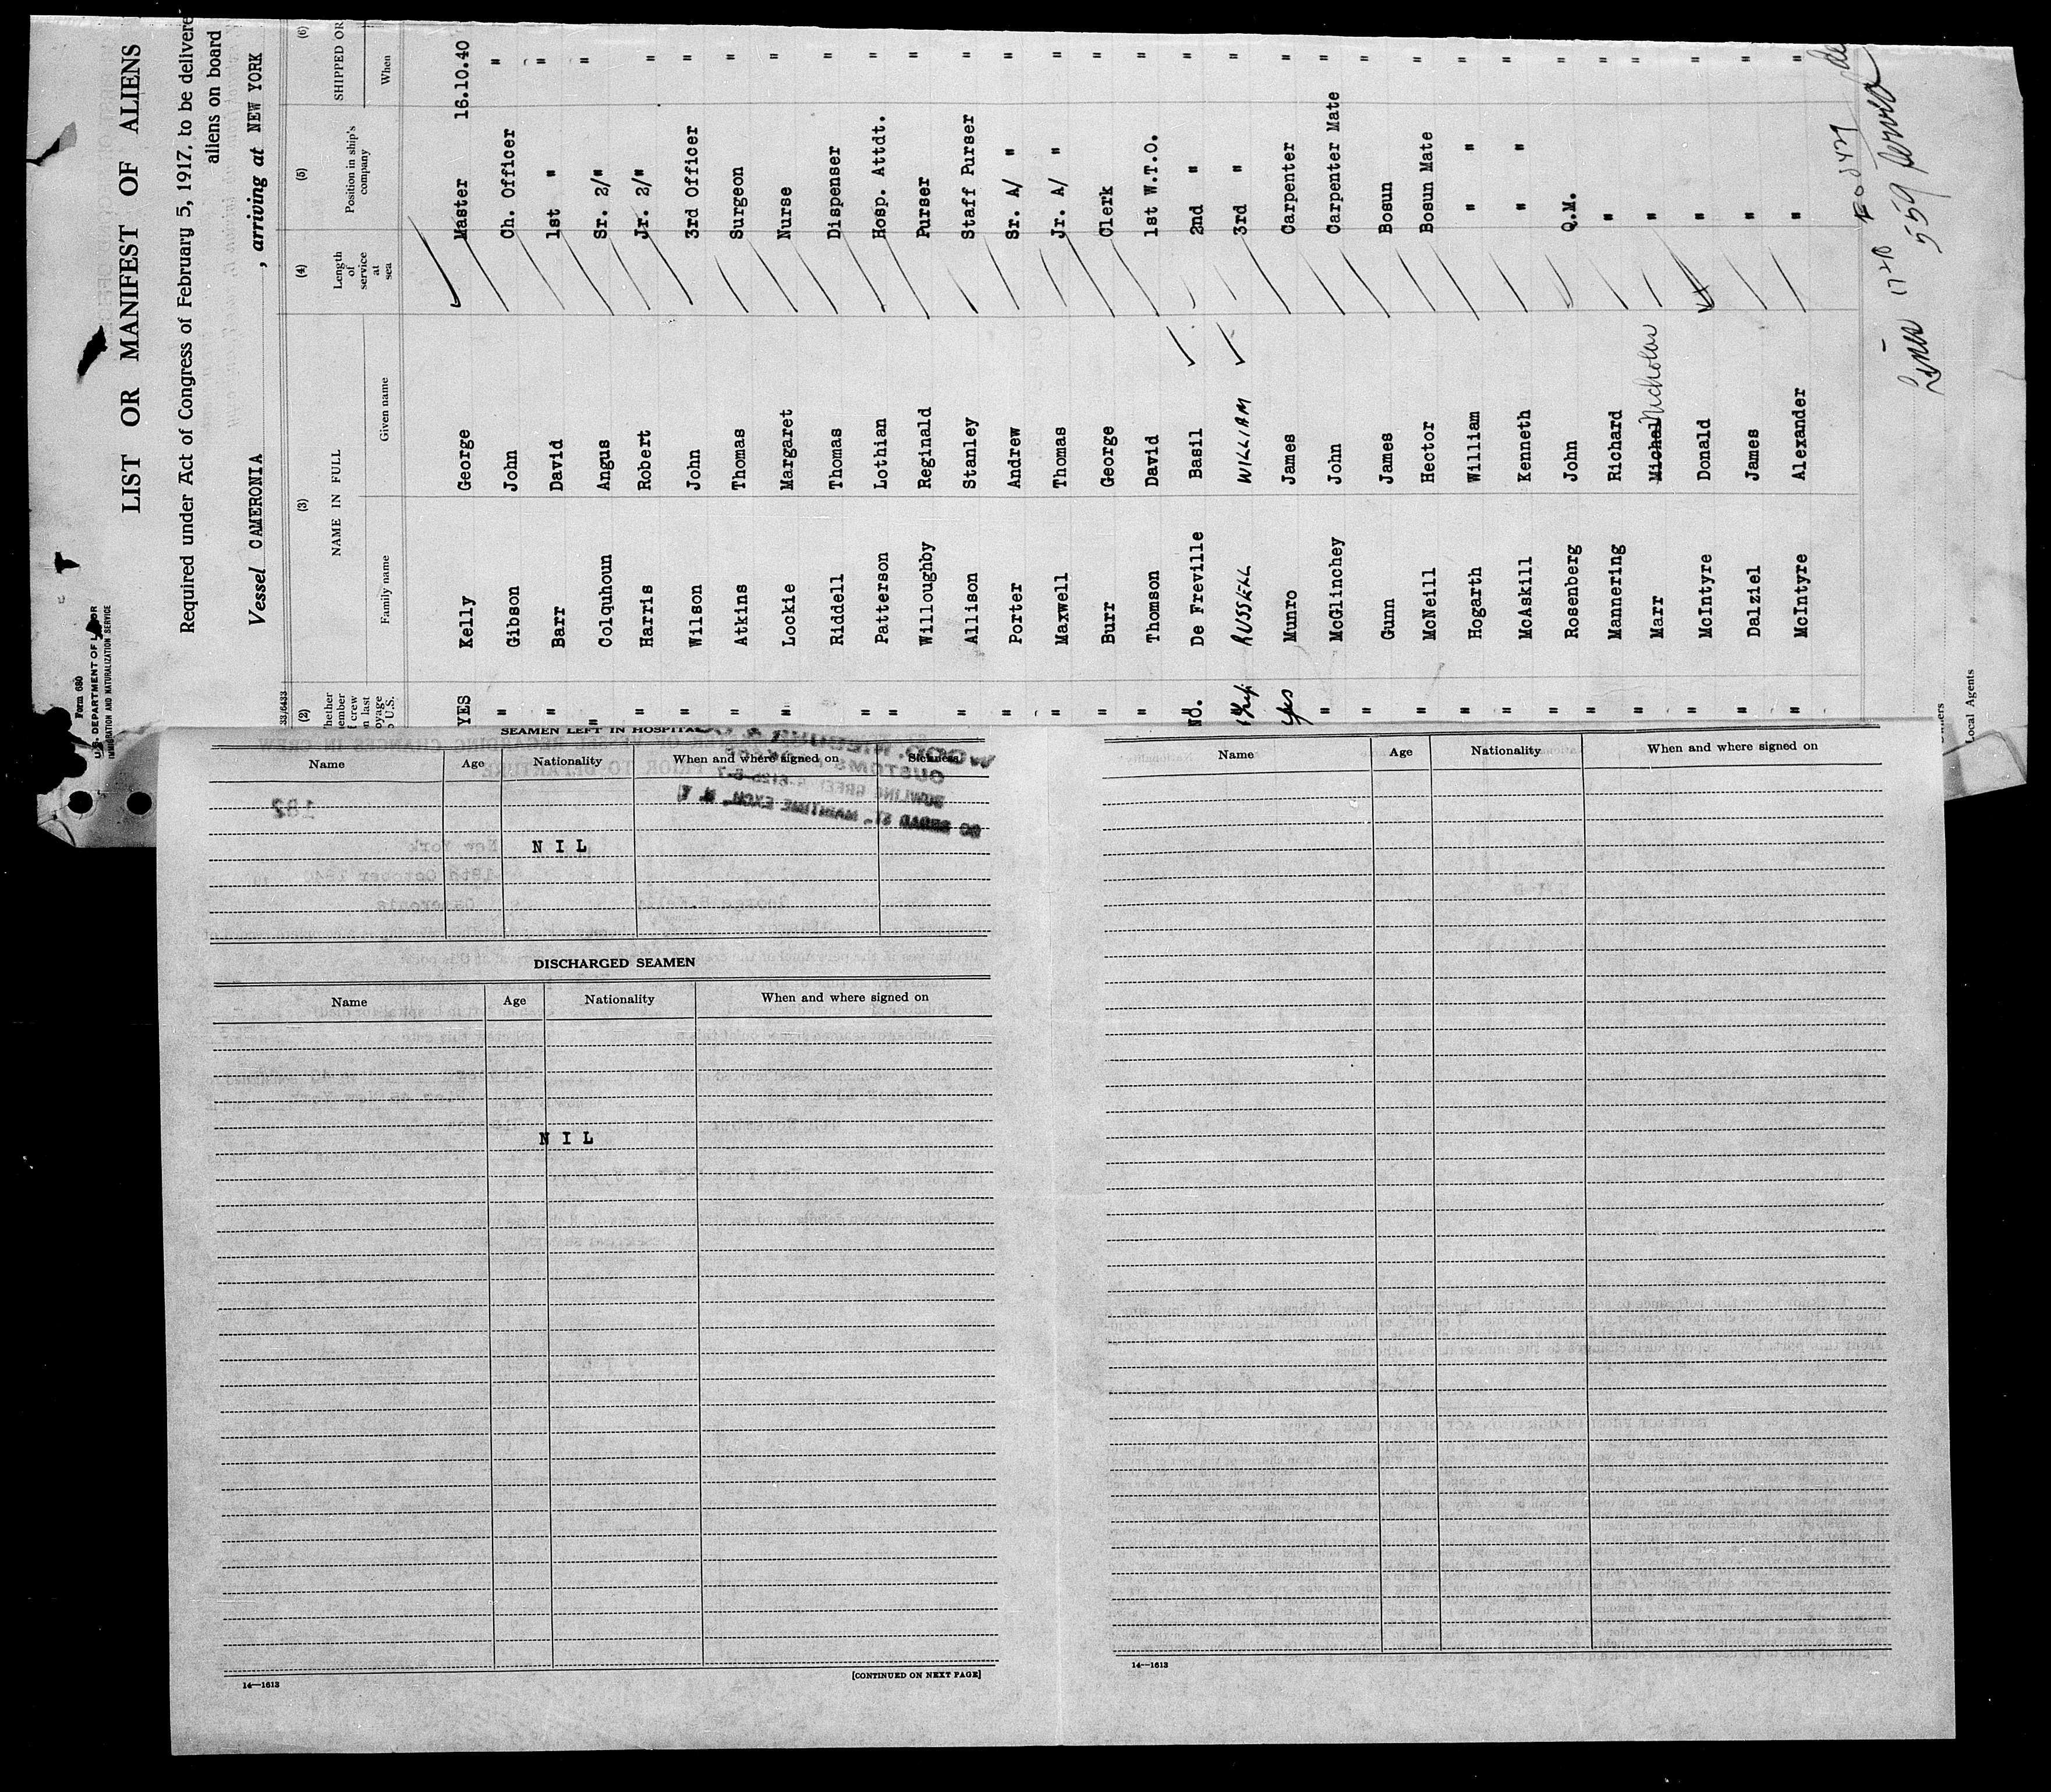 Form 680
U.S. DEPARTMENT OF LABOR
IMMIGRATION AND NATURALIZATION SERVICE
LIST OR MANIFEST OF ALIENS
Required under Act of Congress of February 5, 1917, to be delivere
aliens on board
Vessel CAMERONIA , arriving at NEW YORK
33/6433
(2) (3) (4) (5) (6)
hether ember f crew n last oyage o U.S. NAME IN FULL Length of service at sea Position in ship's company SHIPPED OR
Family name Given name When
YES Kelly George Master 16.10.40
" Gibson John Ch. Officer "
" Barr David 1st " "
" Colquhoun Angus Sr. 2/" "
" Harris Robert Jr. 2/" "
" Wilson John 3rd Officer "
" Atkins Thomas Surgeon "
" Lockie Margaret Nurse "
" Riddell Thomas Dispenser "
" Patterson Lothian Hosp. Attdt. "
" Willoughby Reginald Purser "
" Allison Stanley Staff Purser "
" Porter Andrew Sr. A/ " "
" Maxwell Thomas Jr. A/ " "
" Burr George Clerk "
" Thomson David 1st W.T.O. "
No. De Freville Basil 2nd " "
RUSSELL WILLIAM 3rd " "
yes Munro James Carpenter "
" McGlinchey John Carpenter Mate "
" Gunn James Bosun "
" McNeill Hector Bosun Mate "
" Hogarth William " " "
" McAskill Kenneth " " "
" Rosenberg John Q.M. "
" Mannering Richard " "
" Marr Michel Nicholas " "
" McIntyre Donald " "
" Dalziel James " "
" McIntyre Alexander " "
559
Local Agents
SEAMEN LEFT IN HOSPITAL
Name Age Nationality When and where signed on Sickness
NIL
DISCHARGED SEAMEN
Name Age Nationality When and where signed on
NIL
[CONTINUED ON NEXT PAGE]
14—1613
Name Age Nationality When and where signed on
14—1613